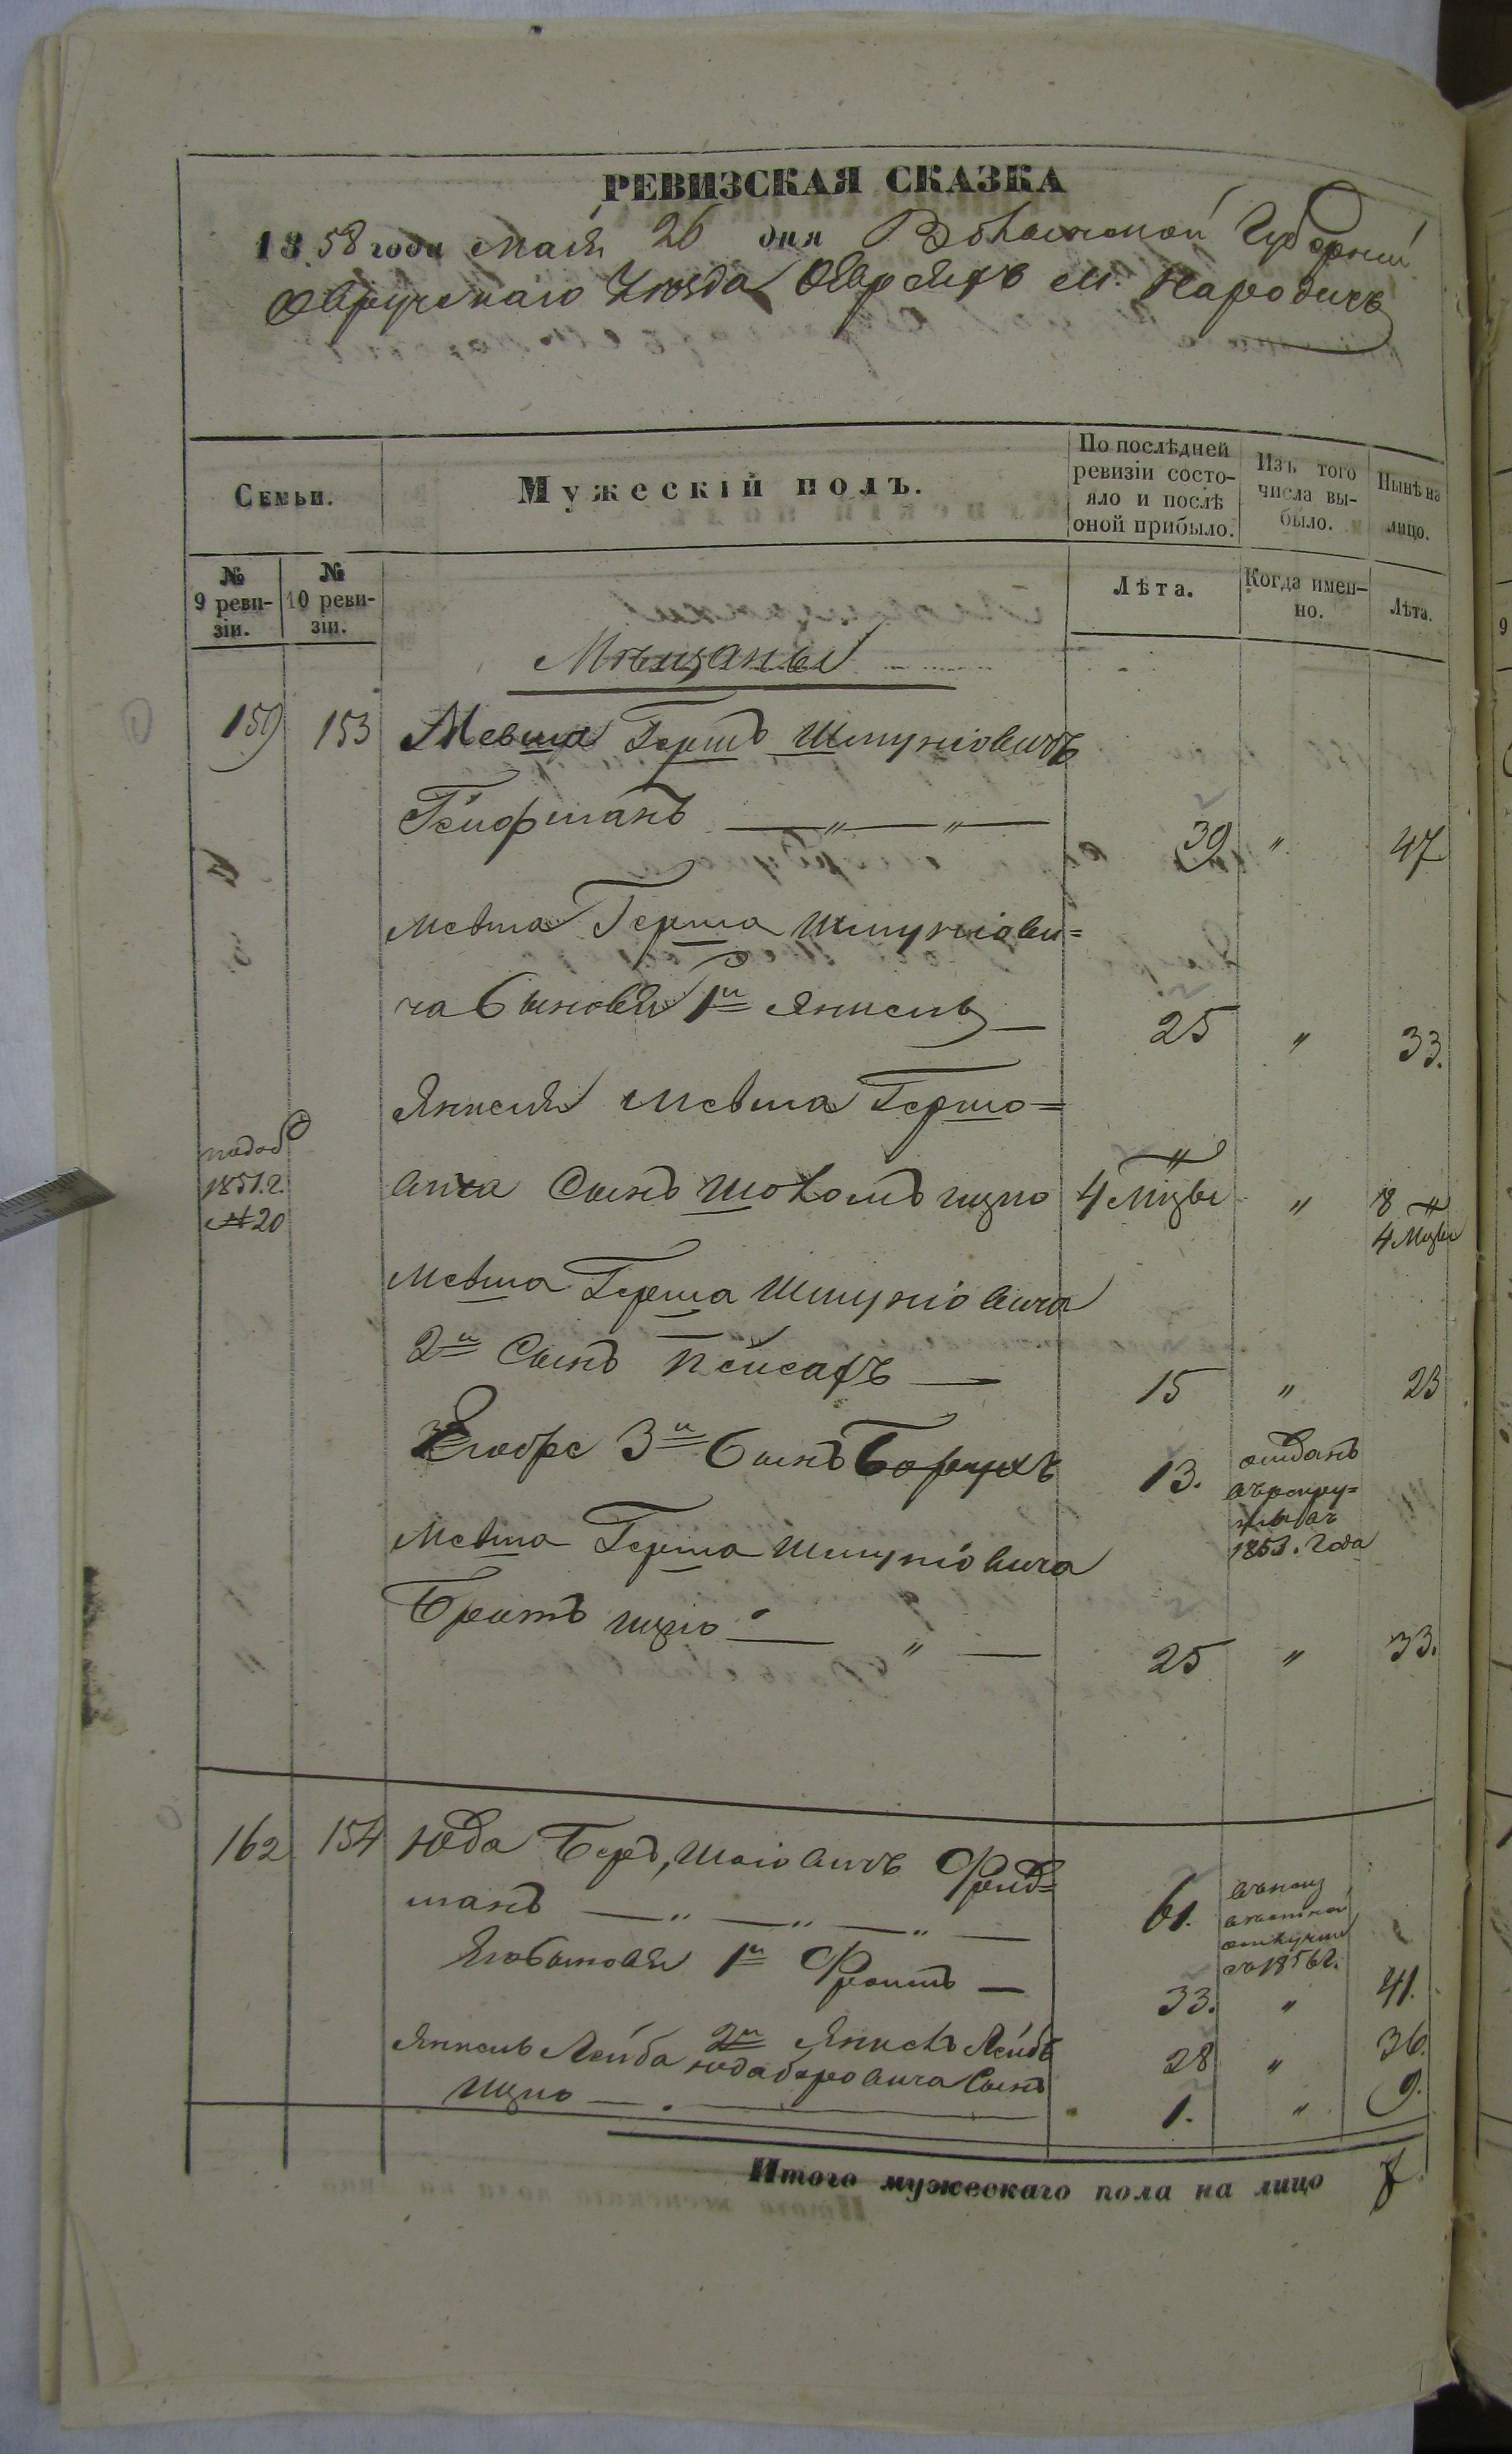 РЕВИЗСКАЯ СКАЗКА
1858 года мая 26 дня Волынской Губернии
Овручскаго Уезда Еврейхъ М. Народичъ
Семьи.
Мужескій полъ.
По послѣдней ревизіи состо-
яло и послѣ
оной прибыло.
Изъ того
числа вы-
было.
Нынѣ на
лицо.
№
9 реви-
зіи.
№
10 реви-
зіи.
Лѣта.
Когда имен-
но.
Лѣта.
Мѣщаны
159 153 Мевша Гершъ Шмуліовичъ
39 " 47
Мевша Герша Шмуліови=
ча Сыновья 1й Янкель 25 " 33.
Янкеля Мевша Гершо=
1851.г.
№20
вича Сынъ Шоломъ Ицко 4 Мцы " 8
4 Мцы
Мевша Герша Шмуліовича
2й Сынъ Пейсахъ 15 " 23
Егоже 3й Сынъ Борухъ 13. отданъ
въ рекру-
ты въ
1853. года
Мевша Герша Шмуліовича
Братъ Ицко " 25 " 33.
162 154 Юда Беръ Шаіовичъ Фрид=
манъ 61.
въ 1856г.
Его Сыновья 1й Фроимъ 33. " 41.
2й Янкель Лейбъ 28 " 36.
Янкель Лейба Юдаберовича Сынъ
Ицко 1. " 9.
Итого мужескаго пола на лицо